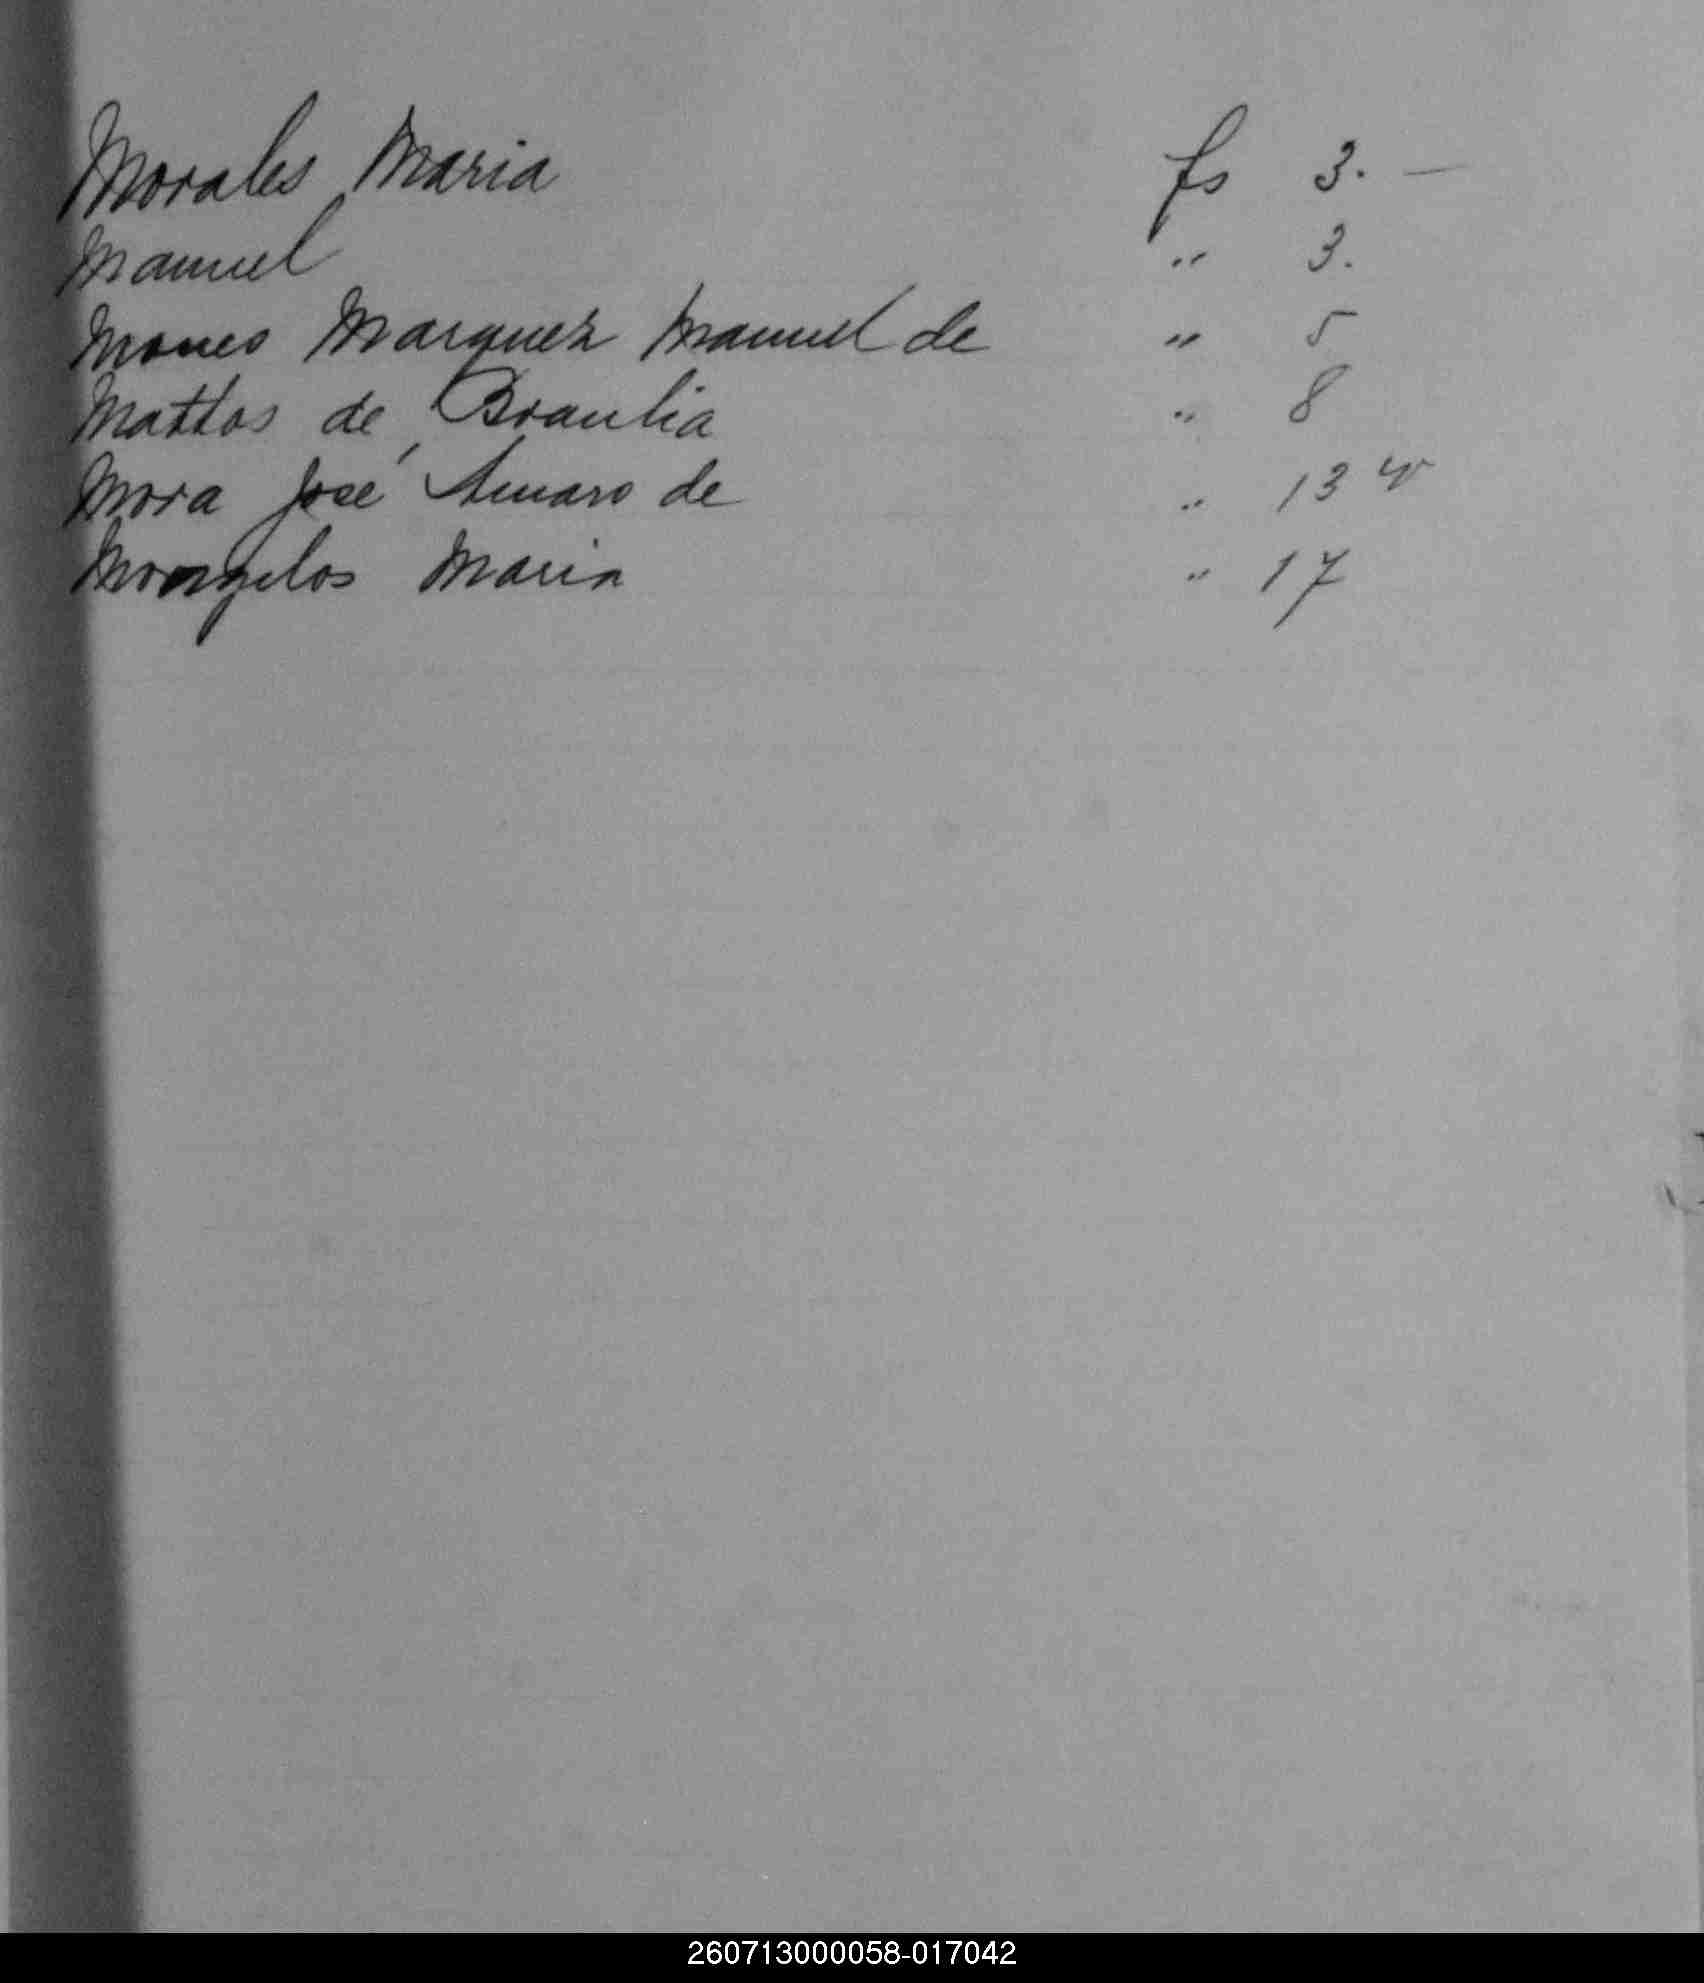 Morales Maria fs 3. —
Manuel " 3.
Mones Marquez Manuel de " 5
Mattos de Braulia " 8
Mora José Amaro de " 13 v
Mongelos Maria " 17
260713000058-017042